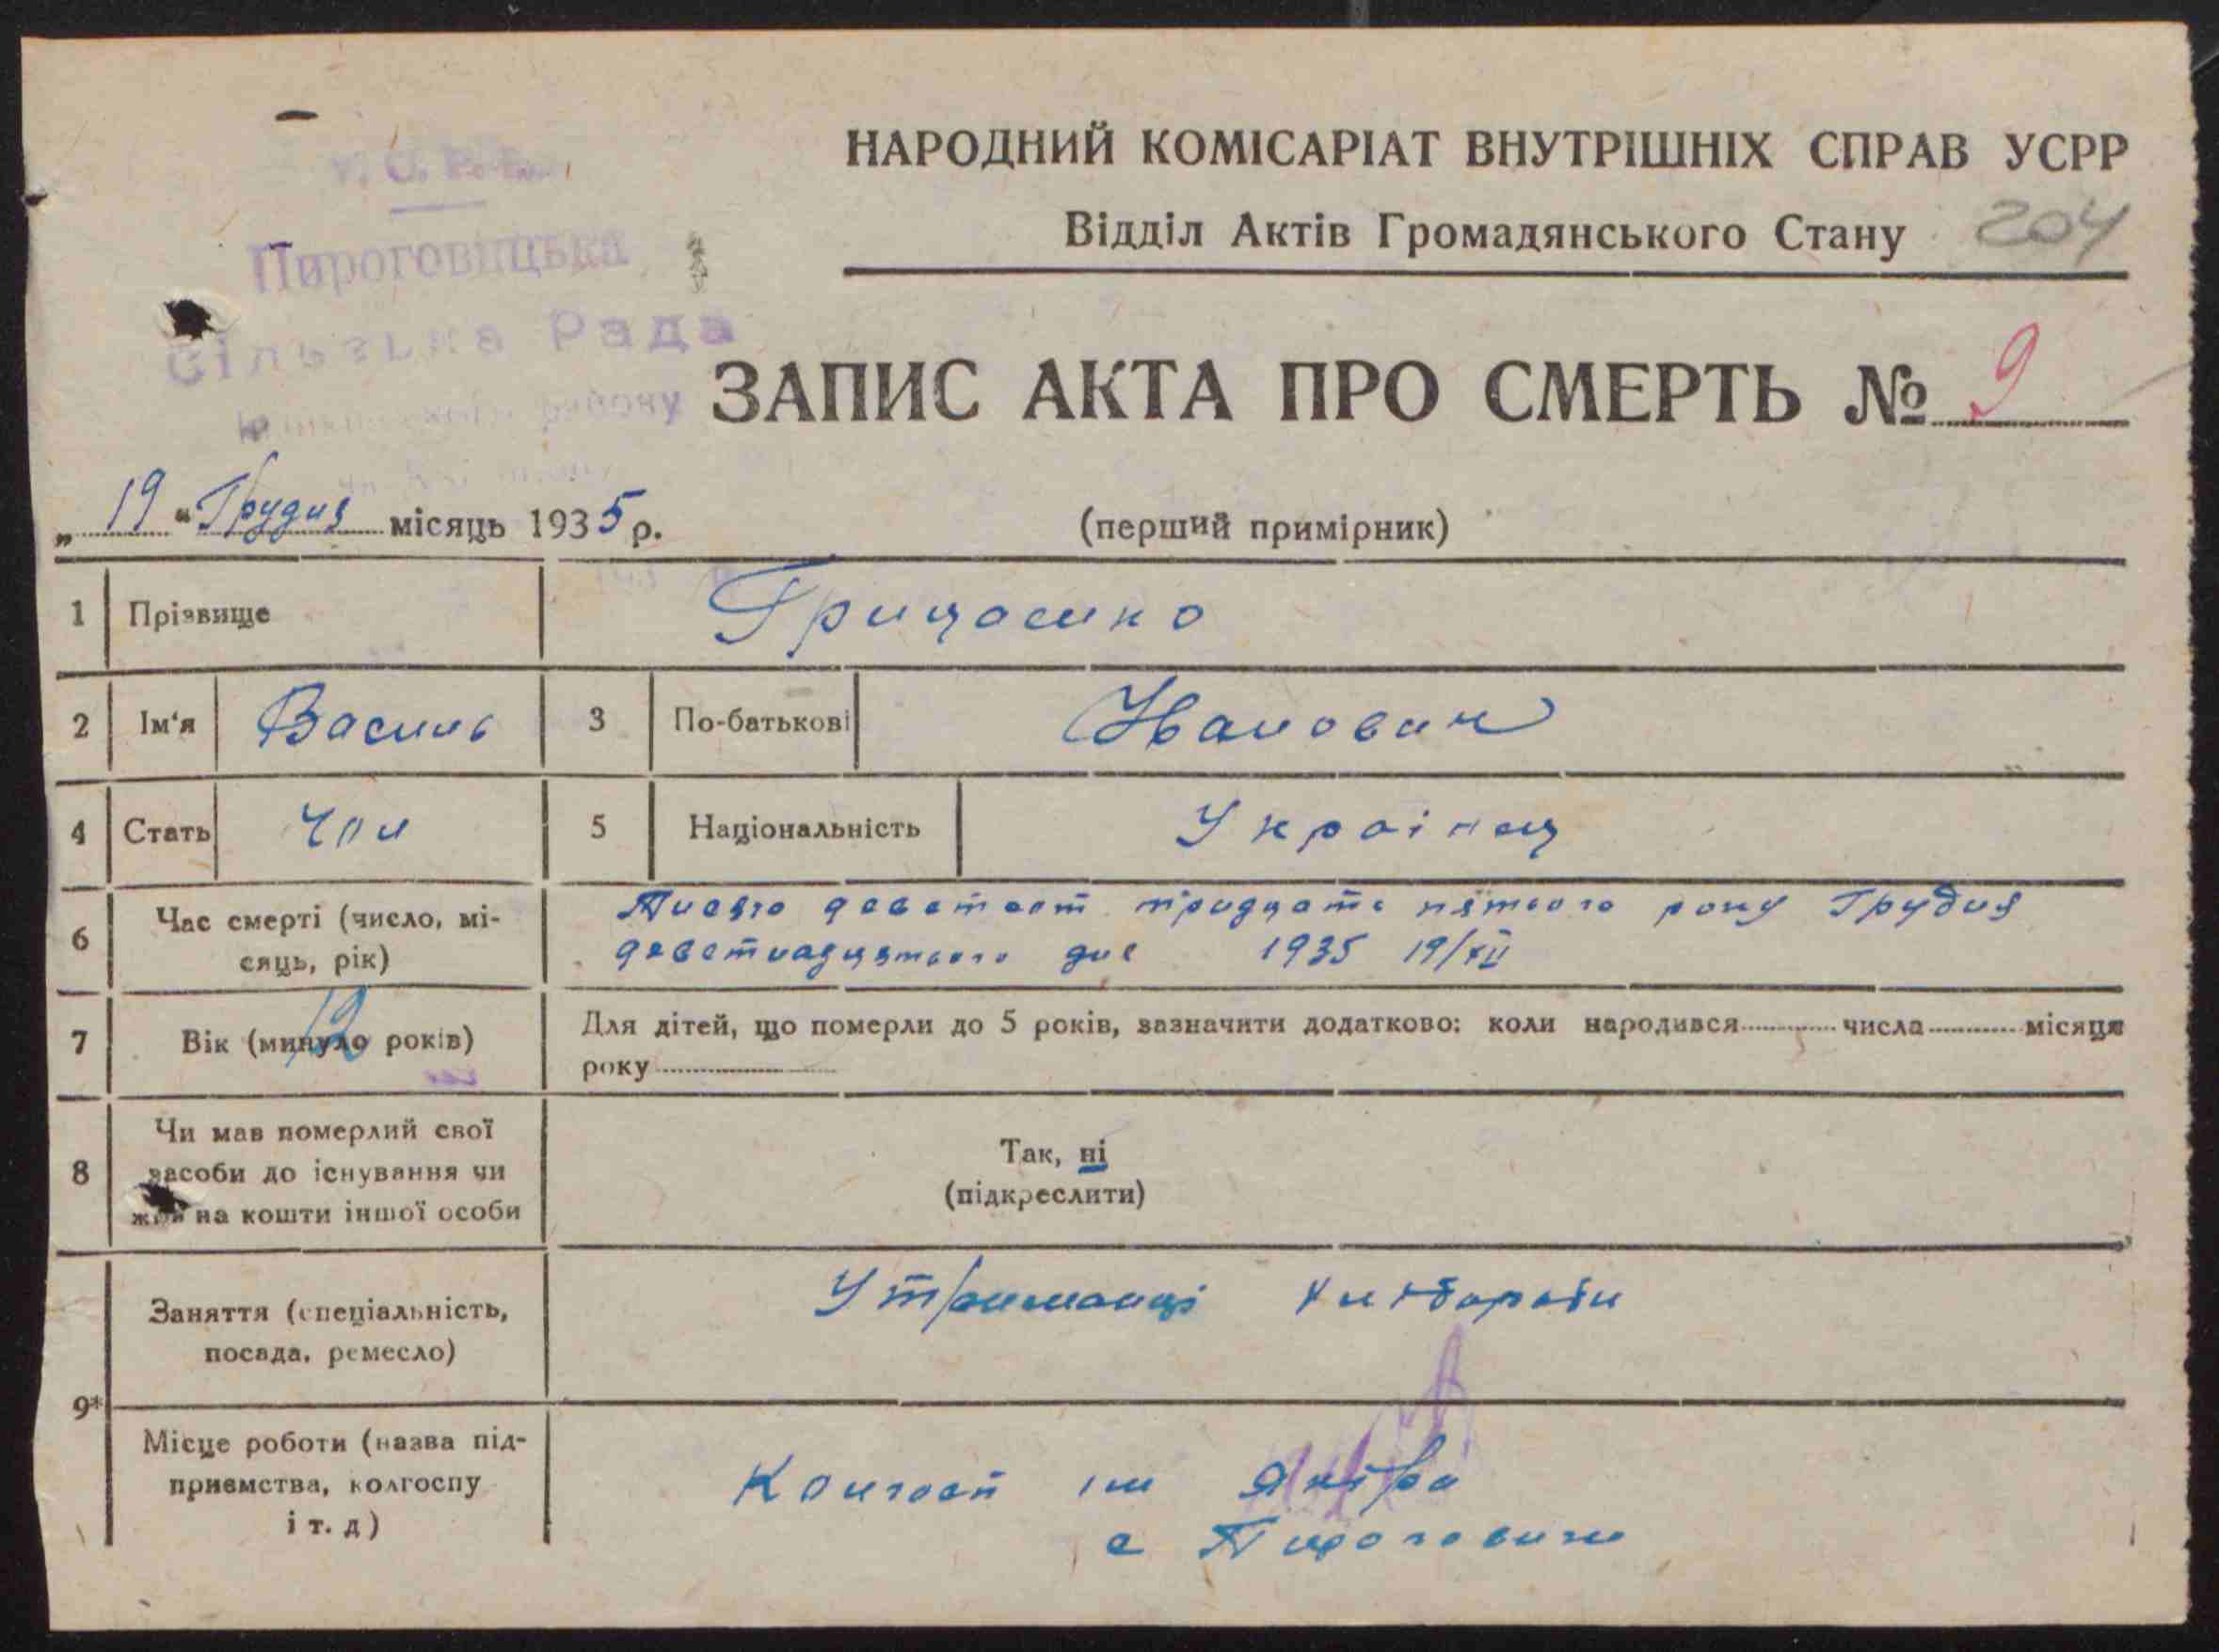 Пироговицька
Сільська Рада
району
НАРОДНИЙ КОМІСАРІАТ ВНУТРІШНІХ СПРАВ УСРР
Відділ Актів Громадянського Стану 204
ЗАПИС АКТА ПРО СМЕРТЬ № 9
„19“ Грудня місяць 1935 р. (перший примірник)
1 Прізвище Грицаенко
2 Ім'я Василь 3 По-батькові Иванович
4 Стать чол 5 Національність Українец
6 Час смерті (число, місяць, рік)
девятсот тридцать пятого року Грудня
девятнадцятого дня 1935 19/XII
7 Вік (минуло років) 12 Для дітей, що померли до 5 років, зазначити додатково: коли народився числа місяця
року
8 Чи мав померлий свої
засоби до існування чи
жив на кошти іншої особи
Так, ні
(підкреслити)
9*
Заняття (спеціальність,
посада, ремесло)
Утриманці
Місце роботи (назва під-
приємства, колгоспу
і т. д)
Колгосп ім Якіра
с Пироговичи